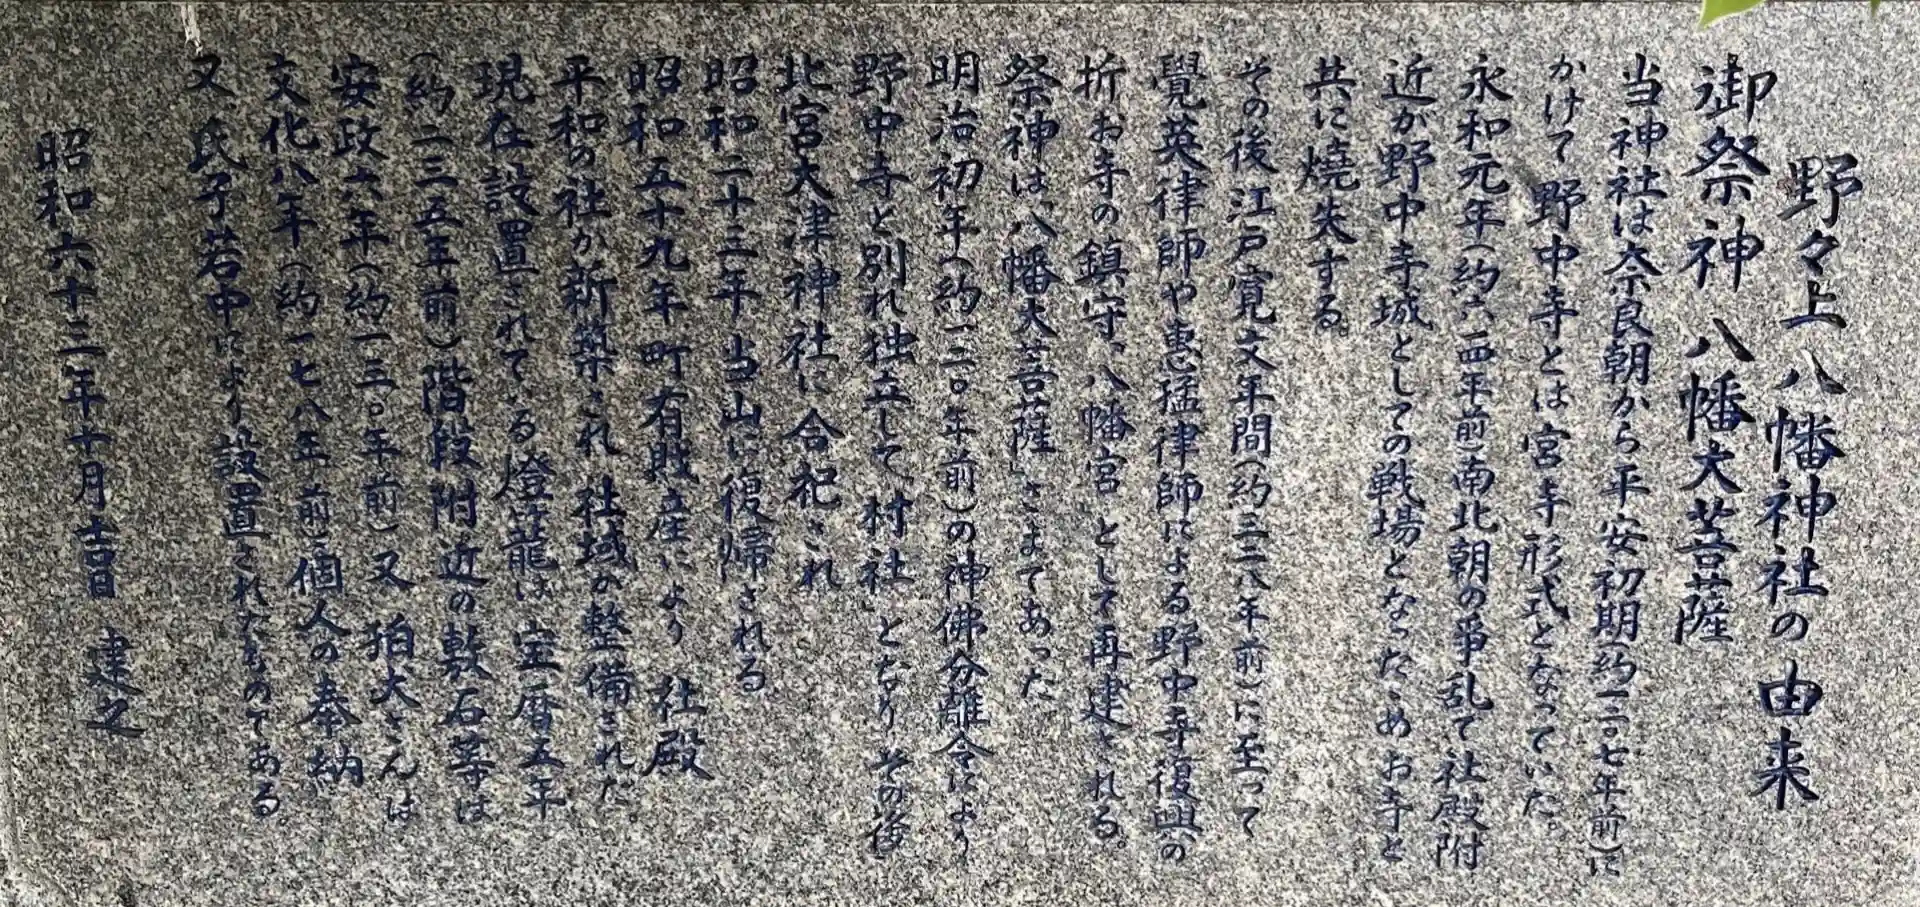 野々上八幡神社の由来
御祭神 八幡大菩薩
当神社は奈良朝から平安初期(約一二〇七年前)に
かけて野中寺とは宮寺形式となっていた。
永和元年(約六一四年前)南北朝の争乱で社殿附
近が野中寺城としての戦場となったためお寺と
共に焼失する。
その後江戸寛文年間(約三二八年前)に至って
覺英律師や惠猛律師による野中寺復興の
折お寺の鎮守、八幡宮、として再建される。
祭神は「八幡大菩薩」さまであった
明治初年(約一二〇年前)の神佛分離令により
野中寺と別れ独立して村社となりその後
北宮大津神社に合祀され
昭和二十三年当山に復帰される
昭和五十九年町有財産により社殿
平和の社が新築され社域が整備された。
現在設置されている燈籠は宝暦五年
(約二三五年前)階段附近の敷石等は
安政六年(約一三〇年前)又狛犬さんは
文化八年(約一七八年前)個人の奉納
又、氏子若中により設置されたものである。
昭和六十三年十月吉日 建之